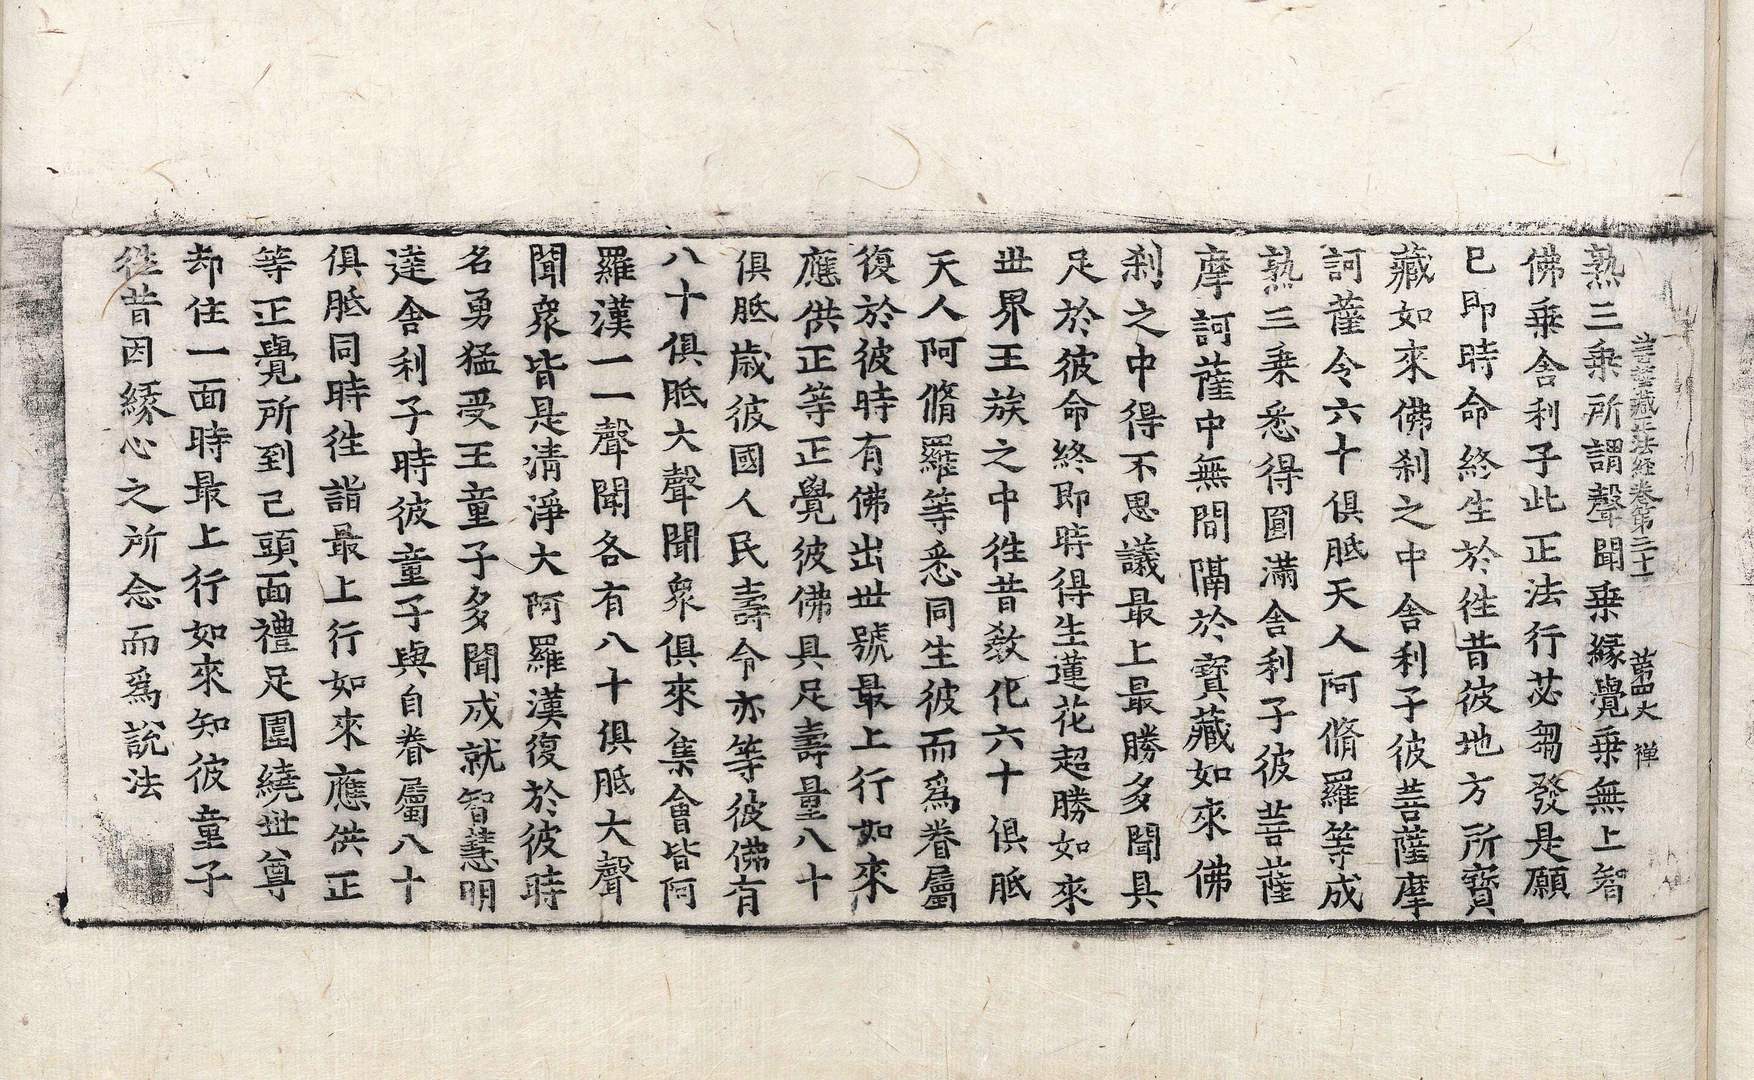 菩薩藏正法經卷第三十 第四丈 禅
熟三乗所謂聲聞乗緣覺乗無上智
佛乗舍利子此正法行苾芻發是願
已即時命終生於徃昔彼地方所寳
藏如來佛刹之中舍利子彼菩薩摩
訶薩令六十俱胝天人阿脩羅等成
熟三乗悉得圓滿舍利子彼菩薩
摩訶薩中無間隔於寳藏如來佛
刹之中得不思議最上最勝多聞具
足於彼命終即時得生蓮花超勝如來
世界王族之中徃昔敎化六十俱胝
天人阿脩羅等悉同生彼而爲眷屬
復於彼時有佛出世號最上行如來
應供正等正覺彼佛具足壽量八十
俱胝歲彼國人民壽令亦等彼佛有
八十俱胝大聲聞衆俱來集會皆阿
羅漢一一聲聞各有八十俱胝大聲
聞衆皆是清淨大阿羅漢復於彼時
名勇猛受王童子多聞成就智慧明
達舍利子時彼童子與自眷屬八十
俱胝同時徃詣最上行如來應供正
等正覺所到已頭面禮足圍繞世尊
却住一面時最上行如來知彼童子
徃昔因緣心之所念而爲說法